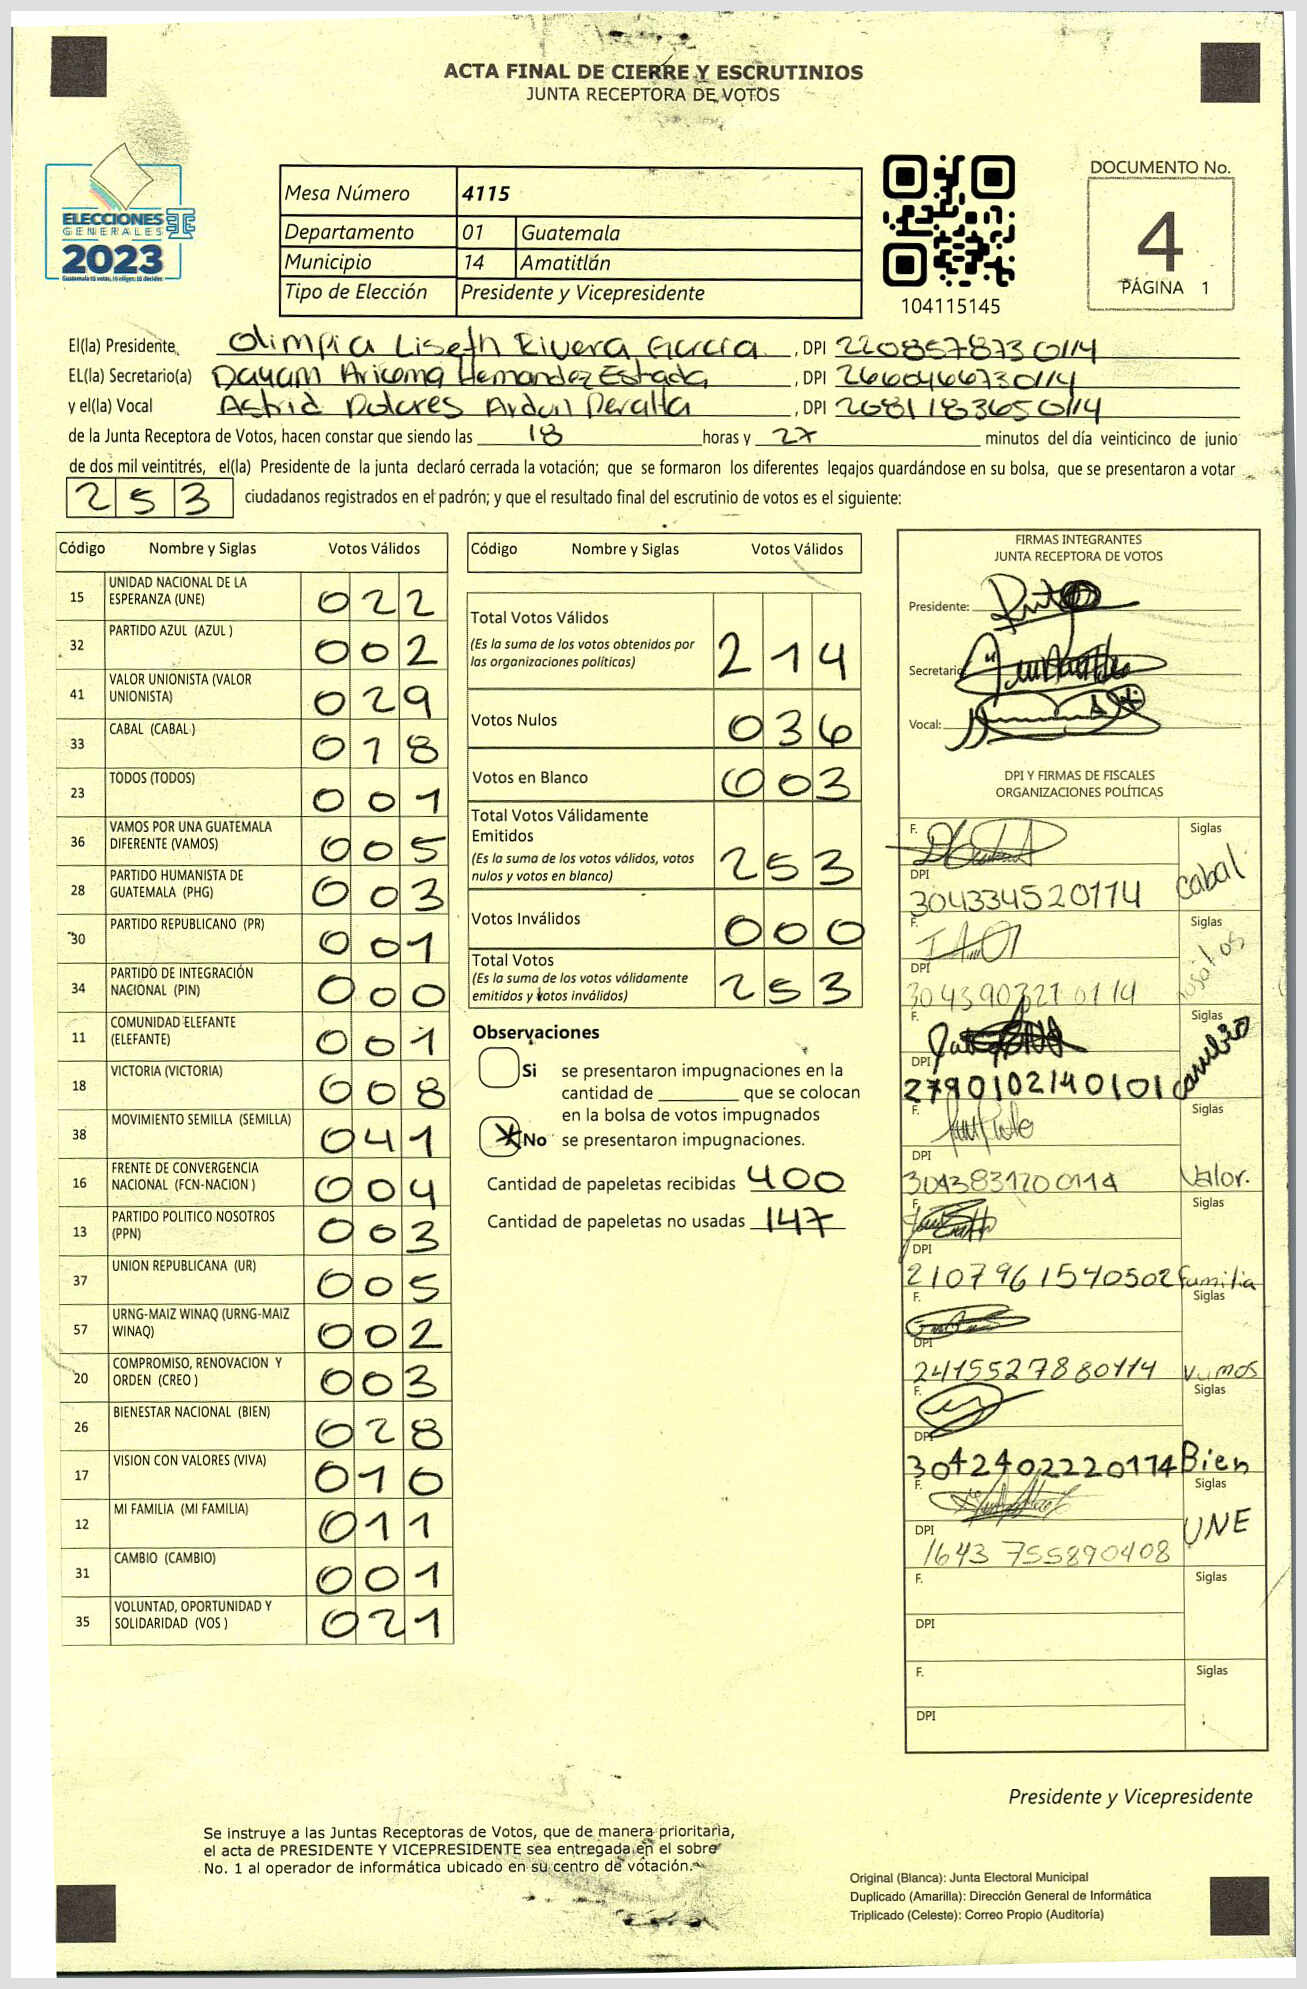 ACTA FINAL DE CIERRE Y ESCRUTINIOS
JUNTA RECEPTORA DE VOTOS
ELECCIONES
GENERALES
2023
Mesa Número 4115
Departamento 01 Guatemala
Municipio 14 Amatitlán
Tipo de Elección Presidente y Vicepresidente
104115145
DOCUMENTO No.
4
PÁGINA 1
El(la) Presidente, Olimpia Liseth Rivera Garcia, DPI 2208578730114
EL(la) Secretario(a) Dayam Aricema Hernandez Estrada, DPI 2660466730114
y el(la) Vocal Astrid Dolores Ardun Peralta, DPI 2081183650114
de la Junta Receptora de Votos, hacen constar que siendo las 18 horas y 27 minutos del día veinticinco de junio
de dos mil veintitrés, el(la) Presidente de la junta declaró cerrada la votación; que se formaron los diferentes legajos guardándose en su bolsa, que se presentaron a votar
253 ciudadanos registrados en el padrón; y que el resultado final del escrutinio de votos es el siguiente:
Código Nombre y Siglas Votos Válidos
15 UNIDAD NACIONAL DE LA ESPERANZA (UNE) 022
32 PARTIDO AZUL (AZUL ) 002
41 VALOR UNIONISTA (VALOR UNIONISTA) 029
33 CABAL (CABAL ) 018
23 TODOS (TODOS) 001
36 VAMOS POR UNA GUATEMALA DIFERENTE (VAMOS) 005
28 PARTIDO HUMANISTA DE GUATEMALA (PHG) 003
30 PARTIDO REPUBLICANO (PR) 001
34 PARTIDO DE INTEGRACIÓN NACIONAL (PIN) 000
11 COMUNIDAD ELEFANTE (ELEFANTE) 001
18 VICTORIA (VICTORIA) 008
38 MOVIMIENTO SEMILLA (SEMILLA) 041
16 FRENTE DE CONVERGENCIA NACIONAL (FCN-NACION ) 004
13 PARTIDO POLITICO NOSOTROS (PPN) 003
37 UNION REPUBLICANA (UR) 005
57 URNG-MAIZ WINAQ (URNG-MAIZ WINAQ) 002
20 COMPROMISO, RENOVACION Y ORDEN (CREO ) 003
26 BIENESTAR NACIONAL (BIEN) 028
17 VISION CON VALORES (VIVA) 010
12 MI FAMILIA (MI FAMILIA) 011
31 CAMBIO (CAMBIO) 001
35 VOLUNTAD, OPORTUNIDAD Y SOLIDARIDAD (VOS ) 021
Código Nombre y Siglas Votos Válidos
Total Votos Válidos 214
(Es la suma de los votos obtenidos por
las organizaciones políticas)
Votos Nulos 036
Votos en Blanco 003
Total Votos Válidamente
Emitidos 253
(Es la suma de los votos válidos, votos
nulos y votos en blanco)
Votos Inválidos 000
Total Votos 253
(Es la suma de los votos válidamente
emitidos y votos inválidos)
Observaciones
Si se presentaron impugnaciones en la
cantidad de ________ que se colocan
en la bolsa de votos impugnados
No se presentaron impugnaciones.
Cantidad de papeletas recibidas 400
Cantidad de papeletas no usadas 147
FIRMAS INTEGRANTES
JUNTA RECEPTORA DE VOTOS
Presidente:
Secretario
Vocal:
DPI Y FIRMAS DE FISCALES
ORGANIZACIONES POLÍTICAS
F. Siglas
DPI 304334520114 Cabal
F. Siglas
DPI 3043903210114
F. Siglas
DPI 2790102140101 Cambio
F. Siglas
DPI 3043831200114 Valor.
F. Siglas
DPI 2107961540502 Familia
F. Siglas
DPI 2415527880114 Vamos
F. Siglas
DPI 3042402220114 Bien
F. Siglas
DPI 1643755890408 UNE
F. Siglas
DPI
F. Siglas
DPI
Presidente y Vicepresidente
Se instruye a las Juntas Receptoras de Votos, que de manera prioritaria,
el acta de PRESIDENTE Y VICEPRESIDENTE sea entregada en el sobre
No. 1 al operador de informática ubicado en su centro de votación.
Original (Blanca): Junta Electoral Municipal
Duplicado (Amarilla): Dirección General de Informática
Triplicado (Celeste): Correo Propio (Auditoría)